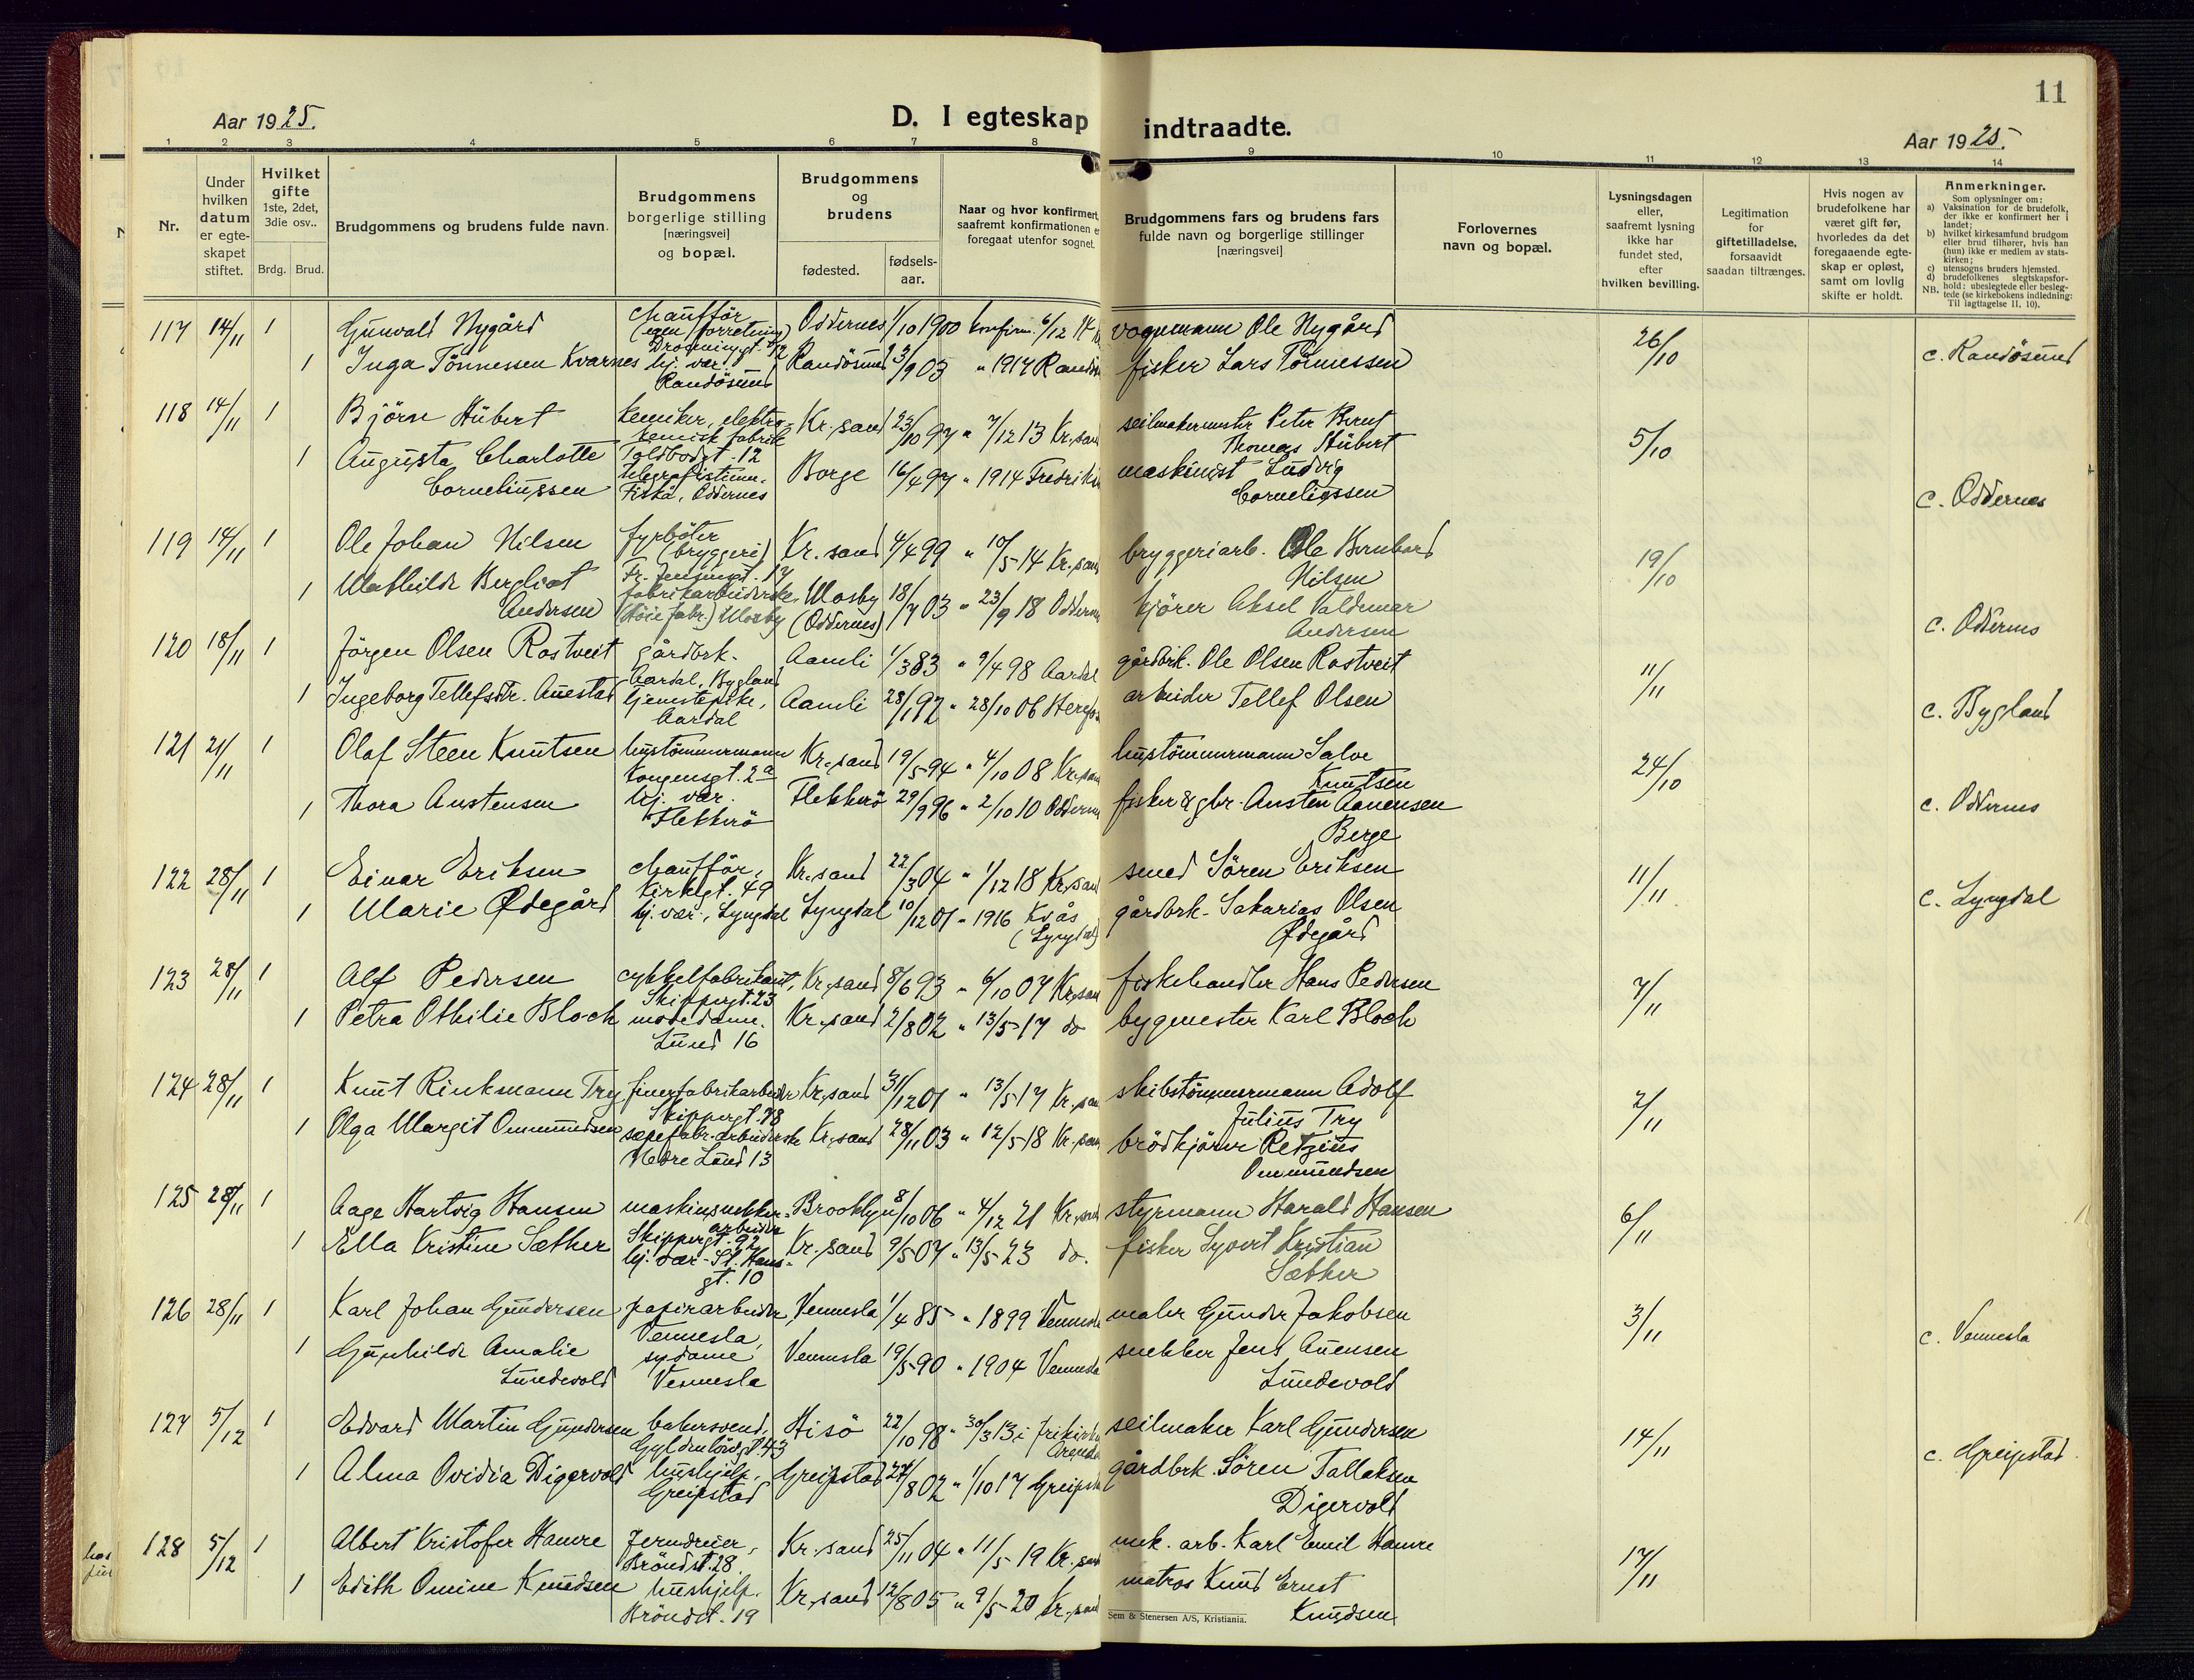 11
Aar 1925.
D. I egteskap indtraadte.
Aar 1925.
1 2 3 4 5 6 7 8 9 10 11 12 13 14
Nr.
Under hvilken datum er egte-skapet stiftet.
Hvilket gifte 1ste, 2det, 3die osv..
Brdg. Brud.
Brudgommens og brudens fulde navn.
Brudgommens borgerlige stilling [næringsvei] og bopæl.
Brudgommens og brudens
fødested.
fødsels-aar.
Naar og hvor konfirmert, saafremt konfirmationen e foregaat utenfor sognet.
Brudgommens fars og brudens fars fulde navn og borgerlige stillinger [næringsvei]
Forlovernes navn og bopæl.
Lysningsdagen eller, saafremt lysning ikke har fundet sted, efter hvilken bevilling.
Legitimation for giftetilladelse, forsaavidt saadan tiltrænges.
Hvis nogen av brudefolkene har været gift før, hvorledes da det foregaaende egte-skap er opløst, samt om lovlig skifte er holdt.
Anmerkninger.
Som oplysninger om:
a) Vaksination for de brudefolk, der ikke er konfirmert her i landet;
b) hvilket kirkesamfund brudgom eller brud tilhører, hvis han (hun) ikke er medlem av stats-kirken;
c) utensogns bruders hjemsted.
d) brudefolkenes slegtskapsfor-hold: ubeslegtede eller besleg-tede (se kirkebokens indledning:
NB. Til Iagttagelse II, 10).
117 14/11 1 Gunvald Nygård chauffør (egen forretning) Dronninggt. 72 Oddernes 1/10 1900 konfirm. 6/12 14 vognmann Ole Nygård 26/10
1 Inga Tönnessen Kvarnes hj. vær. Randösund Randösund 3/9 03 " 1917 Randös fisker Lars Tönnessen c. Randösund
118 14/11 1 Björn Hübert kemiker, elektro-kemisk fabrik Toldbodgt. 12 Kr.sand 23/10 97 " 7/12 13 Kr.sand seilmakermester Peter Bernt Thomas Hübert 5/10
1 Augusta Charlotte Corneliussen telegrafistinne. Fiskå, Oddernes Borge 16/4 97 " 1914 Fredriks maskinist Ludvig Corneliussen c. Oddernes
119 14/11 1 Ole Johan Nilsen fyrböter (bryggeri) Fr. Jensensgt. 17 Kr.sand 4/4 99 " 10/5 14 Kr.sand bryggeriarb. Ole Bernhard Nilsen 19/10
1 Mathilde Bergliot Andersen fabrikarbeiderske, (Höie fabr.) Mosby Mosby (Oddernes) 18/7 03 " 23/9 18 Oddern kjörer Aksel Valdemar Andersen c. Oddernes
120 18/11 1 Jörgen Olsen Rostveit gårdbrk. Aardal, Bygland Aamli 1/3 83 " 9/4 98 Aardal gårdbrk. Ole Olsen Rostveit 11/11
1 Ingeborg Tellefsdtr. Auestad tjenestepike, Aardal Aamli 28/1 92 " 28/10 06 Herefos arbeider Tellef Olsen c. Bygland
121 21/11 1 Olaf Steen Knutsen hustömmermann Kongensgt. 2a Kr.sand 19/5 94 " 4/10 08 Kr.san hustömmermann Salve Knutsen 24/10
1 Thora Austensen hj. vær. Flekkerö Flekkerö 29/9 96 " 2/10 10 Oddern fisker & gbr. Austen Aanensen Berge c. Oddernes
122 28/11 1 Einar Eriksen chauffør, Kirkegt. 49 Kr.sand 22/3 04 " 1/12 18 Kr.sand smed Sören Eriksen 11/11
1 Marie Ødegård hj. vær., Lyngdal Lyngdal 10/12 01 " 1916 Kvås (Lyngdal) gårdbrk. Sakarias Olsen Ødegård c. Lyngdal
123 28/11 1 Alf Pedersen cykkelfabrikant, Skippergt. 23 Kr.sand 8/6 93 " 6/10 07 Kr.san fiskehandler Hans Pedersen 7/11
1 Petra Othilie Bloch motedame. Lund 16 Kr.sand 2/8 02 " 13/5 17 do bygmester Karl Bloch
124 28/11 1 Knut Rinkmann Try finerfabrikarbeider Skippergt. 78 Kr.sand 31/12 01 " 13/5 17 Kr.san skibstömmermann Adolf Julius Try 2/11
1 Olga Margit Ommundsen sæpefabr.arbeiderske Nedre Lund 13 Kr.sand 28/11 03 " 12/5 18 Kr.san brödkjörer Retzius Ommundsen
125 28/11 1 Aage Hartvig Hansen maskinsnekker-arbeider Skippergt. 92 Brooklyn 8/10 06 " 4/12 21 Kr.sand styrmann Harald Hansen 6/11
1 Ella Kristine Sæther hj. vær. St. Hans-gt. 10 Kr.sand 9/5 07 " 13/5 23 do. fisker Syvert Kristian Sæther
126 28/11 1 Karl Johan Gundersen papirarbeider, Vennesla, Vennesla 1/4 85 " 1899 Vennesla maler Gunder Jakobsen 3/11
1 Gunhilde Amalie Lundevold sydame Vennesla Vennesla 19/5 90 " 1904 Vennesla snekker Jens Auensen Lundevold c. Vennesla
127 5/12 1 Edvard Martin Gundersen bakersvend, Gyldenlövsgt. 43 Hisö 22/10 98 " 30/3 13 i frikirke Arendal seilmaker Karl Gundersen 14/11
1 Alma Ovidia Digervold hushjelp. Greipstad Greipstad 27/8 02 " 1/10 17 Greipst gårdbrk. Sören Tallaksen Digervold c. Greipstad.
128 5/12 1 Albert Kristofer Hamre Jerndreier, Kröndst. 28. Kr.sand 25/11 04 " 11/5 19 Kr.sand mek. arb. Karl Emil Hamre 17/11
1 Edith Omine Knudsen hushjelp. Kröndst. 19 Kr.sand 12/8 05 " 9/5 20 Kr.sand matros Knud Ernst Knudsen
Sem & Stenersen A/S, Kristiania.